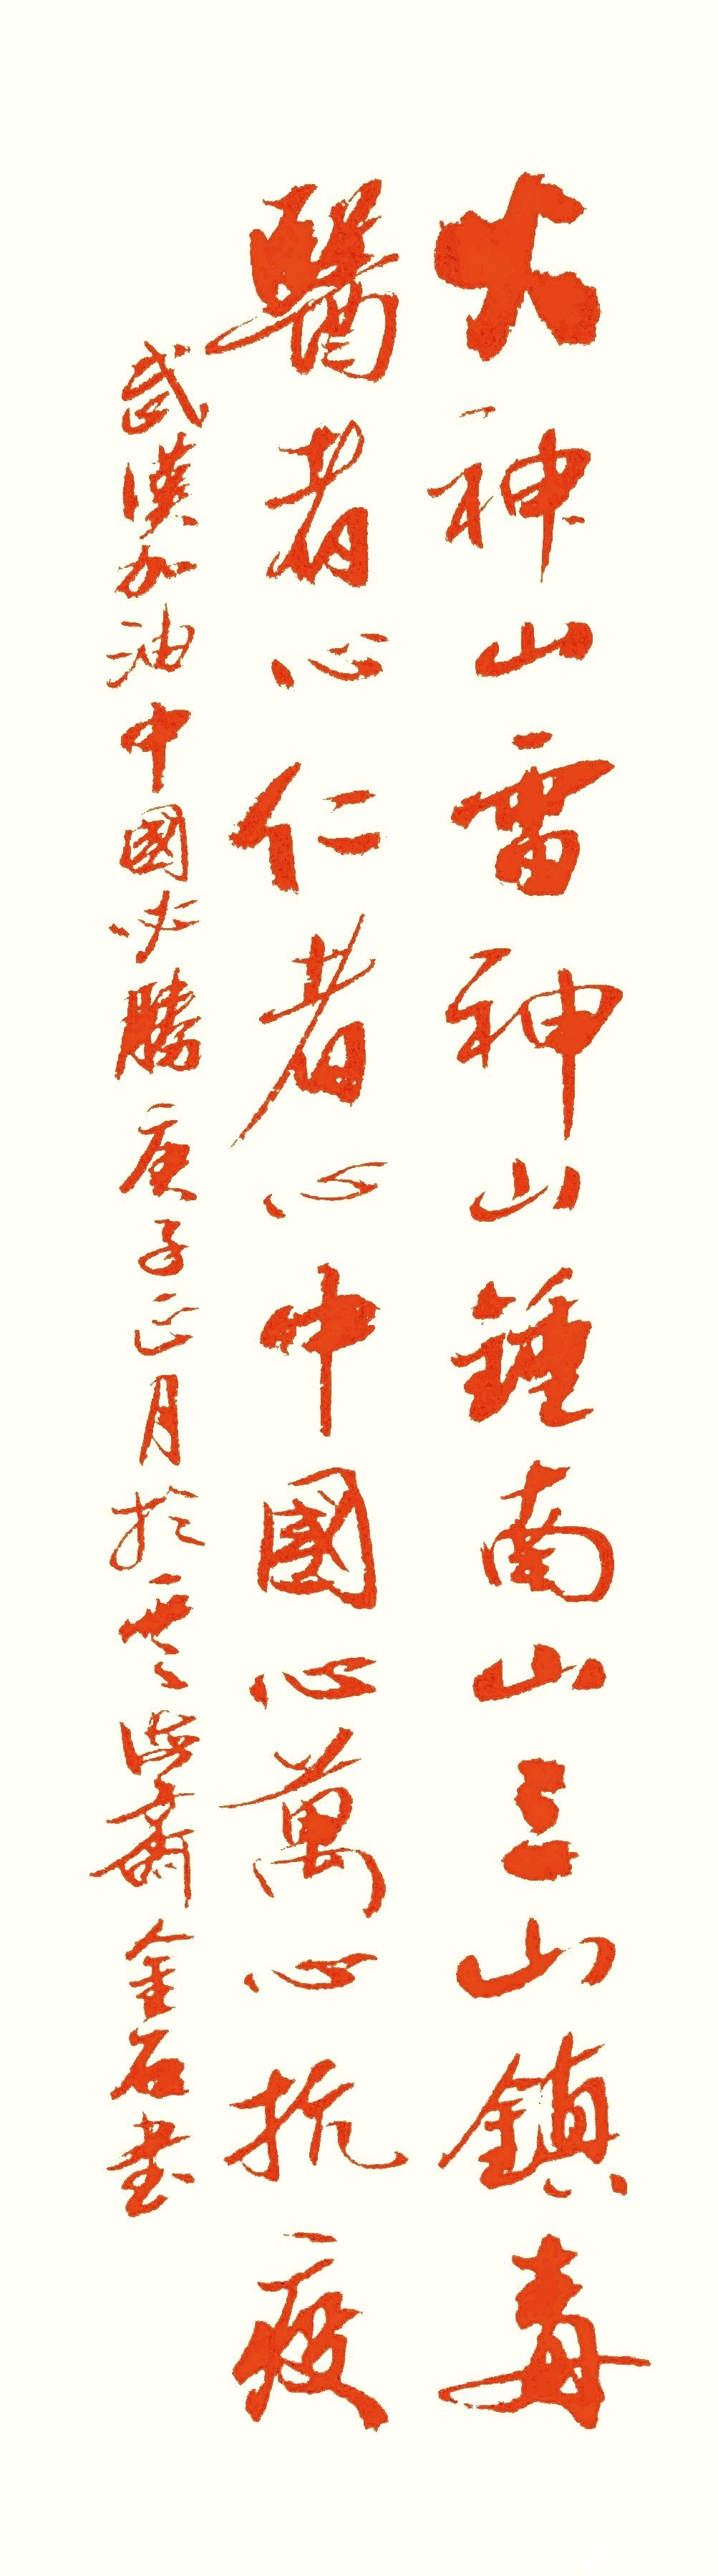 火神山雷神山鍾南山三山鎮毒
醫者心仁者心中國心萬心抗疫
武漢加油中國必勝庚子正月於雲海齋金石書